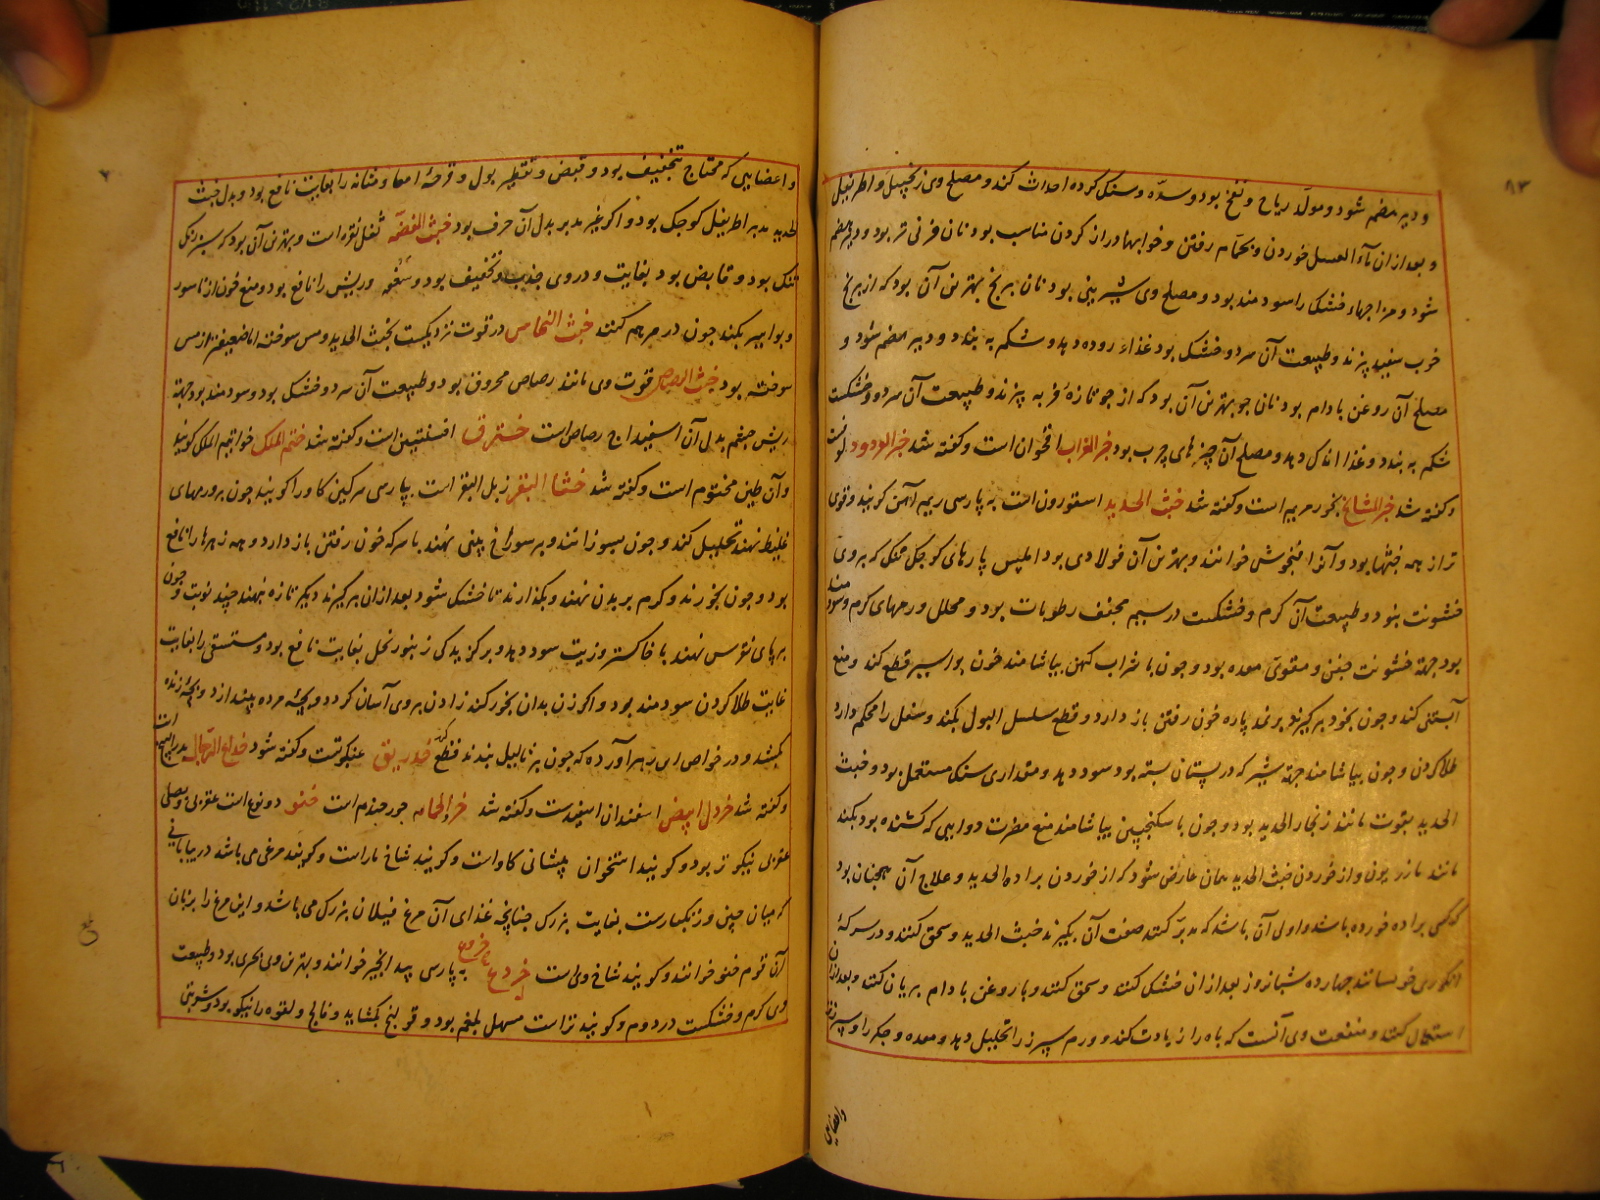 ۸۳
و دیر هضم شود و مولد ریاح و نفخ بود و سدّه و سنک کرده احداث کند و مصلح وی زنجبیل و اطریفل
و بعد از ان ماء العسل خوردن و بحمّام رفتن و خوابها دراز کردن مناسب بود نان فرنی تر بود و دیر هضم
شود و مزاجهاء خشک را سودمند بود و مصلح وی شیرینی بود نان برنج بهترین آن بود که از برنج
خوب سفید پزند و طبیعت آن سرد و خشک بود غذاء روده دهد و شکم به بندد و دیر هضم شود و
مصلح آن روغن بادام بود نان جو بهترین آن بود که از جو تازهٔ فربه پزند و طبیعت آن سرد و خشکست
شکم به بندد و غذا اندک دهد و مصلح آن چیزهای چرب بود خبز الغراب اقحوان است و کفته شد خبز الورود
و کفته شد خبز المشایخ بخور مریم است و کفته شد خبث الحدید اسقورون است به پارسی ریم آهن کویند و قوی
تر از همه خبثها بود و آنرا خوانند و بهترین آن فولادی بود املس پارهای کوچک تنک که بروی
خشونت بنود و طبیعت آن کرم و خشکست در سیم مجفف رطوبات بود و محلل ورمهای کرم و سودمند
بود جهة خشونت جفن و مقوی معده بود و چون با شراب کهن بیاشامند خون بواسیر قطع کند و منع
آبستنی کند و چون بخود برگیرند بر نمد پاره خون رفتن باز دارد و قطع سلسل البول بکند و سفل را محکم دارد
طلا کردن و چون بیاشامند جهة شیر که در پستان بسته بود سود دهد و مقداری سنکی مستعمل بود و خبث
الحدید بقوت مانند زنجار الحدید بود و چون با سکنجبین بیاشامند منع مضرت دوایی که کشنده بود بکند
مانند مازریون و از خوردن خبث الحدید همان عارض شود که از خوردن براده الحدید و علاج آن همچنان بود
که کسی براده خورده باشد و اولی آن باشد که مدبر کنند صفت آن بکیرند خبث الحدید و سحق کنند و در سرکهٔ
انکوری خویسانند چهارده شبانروز بعد از ان خشک کنند و سحق کنند و با روغن بادام بریان کنند و بعد از ان
استعمال کنند و منفعت وی آنست که باه را زیادت کند و ورم سپرز را تحلیل دهد و معده و جکر را و سپرز
و اعضایی
و اعضایی که محتاج تجفیف بود و قبض و تقطیر بول و قرحهٔ امعا و مثانه را بغایت نافع بود و بدل خبث
الحدید مدبر اطریفل کوچک بود و اکر غیر مدبر بدل آن حرف بود خبث الفضّه ثفل نقره است و بهترین آن بود که سبز رنک
تنک بود و قابض بود بغایت و در وی جذب و تجفیف بود و سعفه و ریش را نافع بود و منع خون از ناسور
و بواسیر بکند چون در مرهم کنند خبث النحاس در قوت نزدیکست بخبث الحدید و مس سوخته اما ضعیفتر از مس
سوخته بود خبث الرصاص قوت وی مانند رصاص محروق بود و طبیعت آن سرد و خشک بود و سودمند بود جهة
ریش چشم بدل آن اسفیداج رصاص است خترق افسنتین است و کفته شد ختم الملک خواتیم الملک کویند
و آن طین مختوم است و کفته شد خشا البقر زبل البقر است بپارسی سرکین کاو را کویند چون بر ورمهای
غلیظ نهند تحلیل کند و چون بسوزانند و بر سوراخ بینی نهند با سرکه خون رفتن باز دارد و همه زهرها را نافع
بود و چون بخورند و کرم بر بدن نهند و بکذارند تا خشک شود بعد از ان برگیرند دیگر تازه بنهند چند نوبت و چون
بر پای نقرس نهند با خاکستر و زیت سود دهد و بر کزیدکی زنبور نحل بغایت نافع بود و مستسقی را بغایت
غایت طلا کردن سودمند بود و اکر زن بدان بخور کند زادن بروی آسان کردد و بچهٔ مرده بیندازد و بچهٔ زنده
بکشد و در خواص ابن زهر آورده که چون بر ثآلیل بندند قطع کند خدریق عنکبوتست و کفته شود خداع الرجال
و کفته شد خردل ابیض اسفندان اسفیدست و کفته شد خرء الحمام جوز جندم است ختو دو نوع است عقربی و بصلی
عقربی نیکوتر بود و کویند استخوان پیشانی کاو است و کویند شاخ مار است و کویند مرغی می باشد در بیابانی
که میان چین و زنکبارست بغایت بزرک چنانچه غذای آن مرغ فیلان بزرک می باشد و این مرغ را بزبان
آن قوم ختو خوانند و کویند شاخ وی است خروع به پارسی بید انجیر خوانند و بهترین وی بحری بود و طبیعت
وی کرم و خشکست در دوم و کویند تر است مسهل بلغم بود و قولنج بکشاید و فالج و لقوه را نیکو بود و شربتی